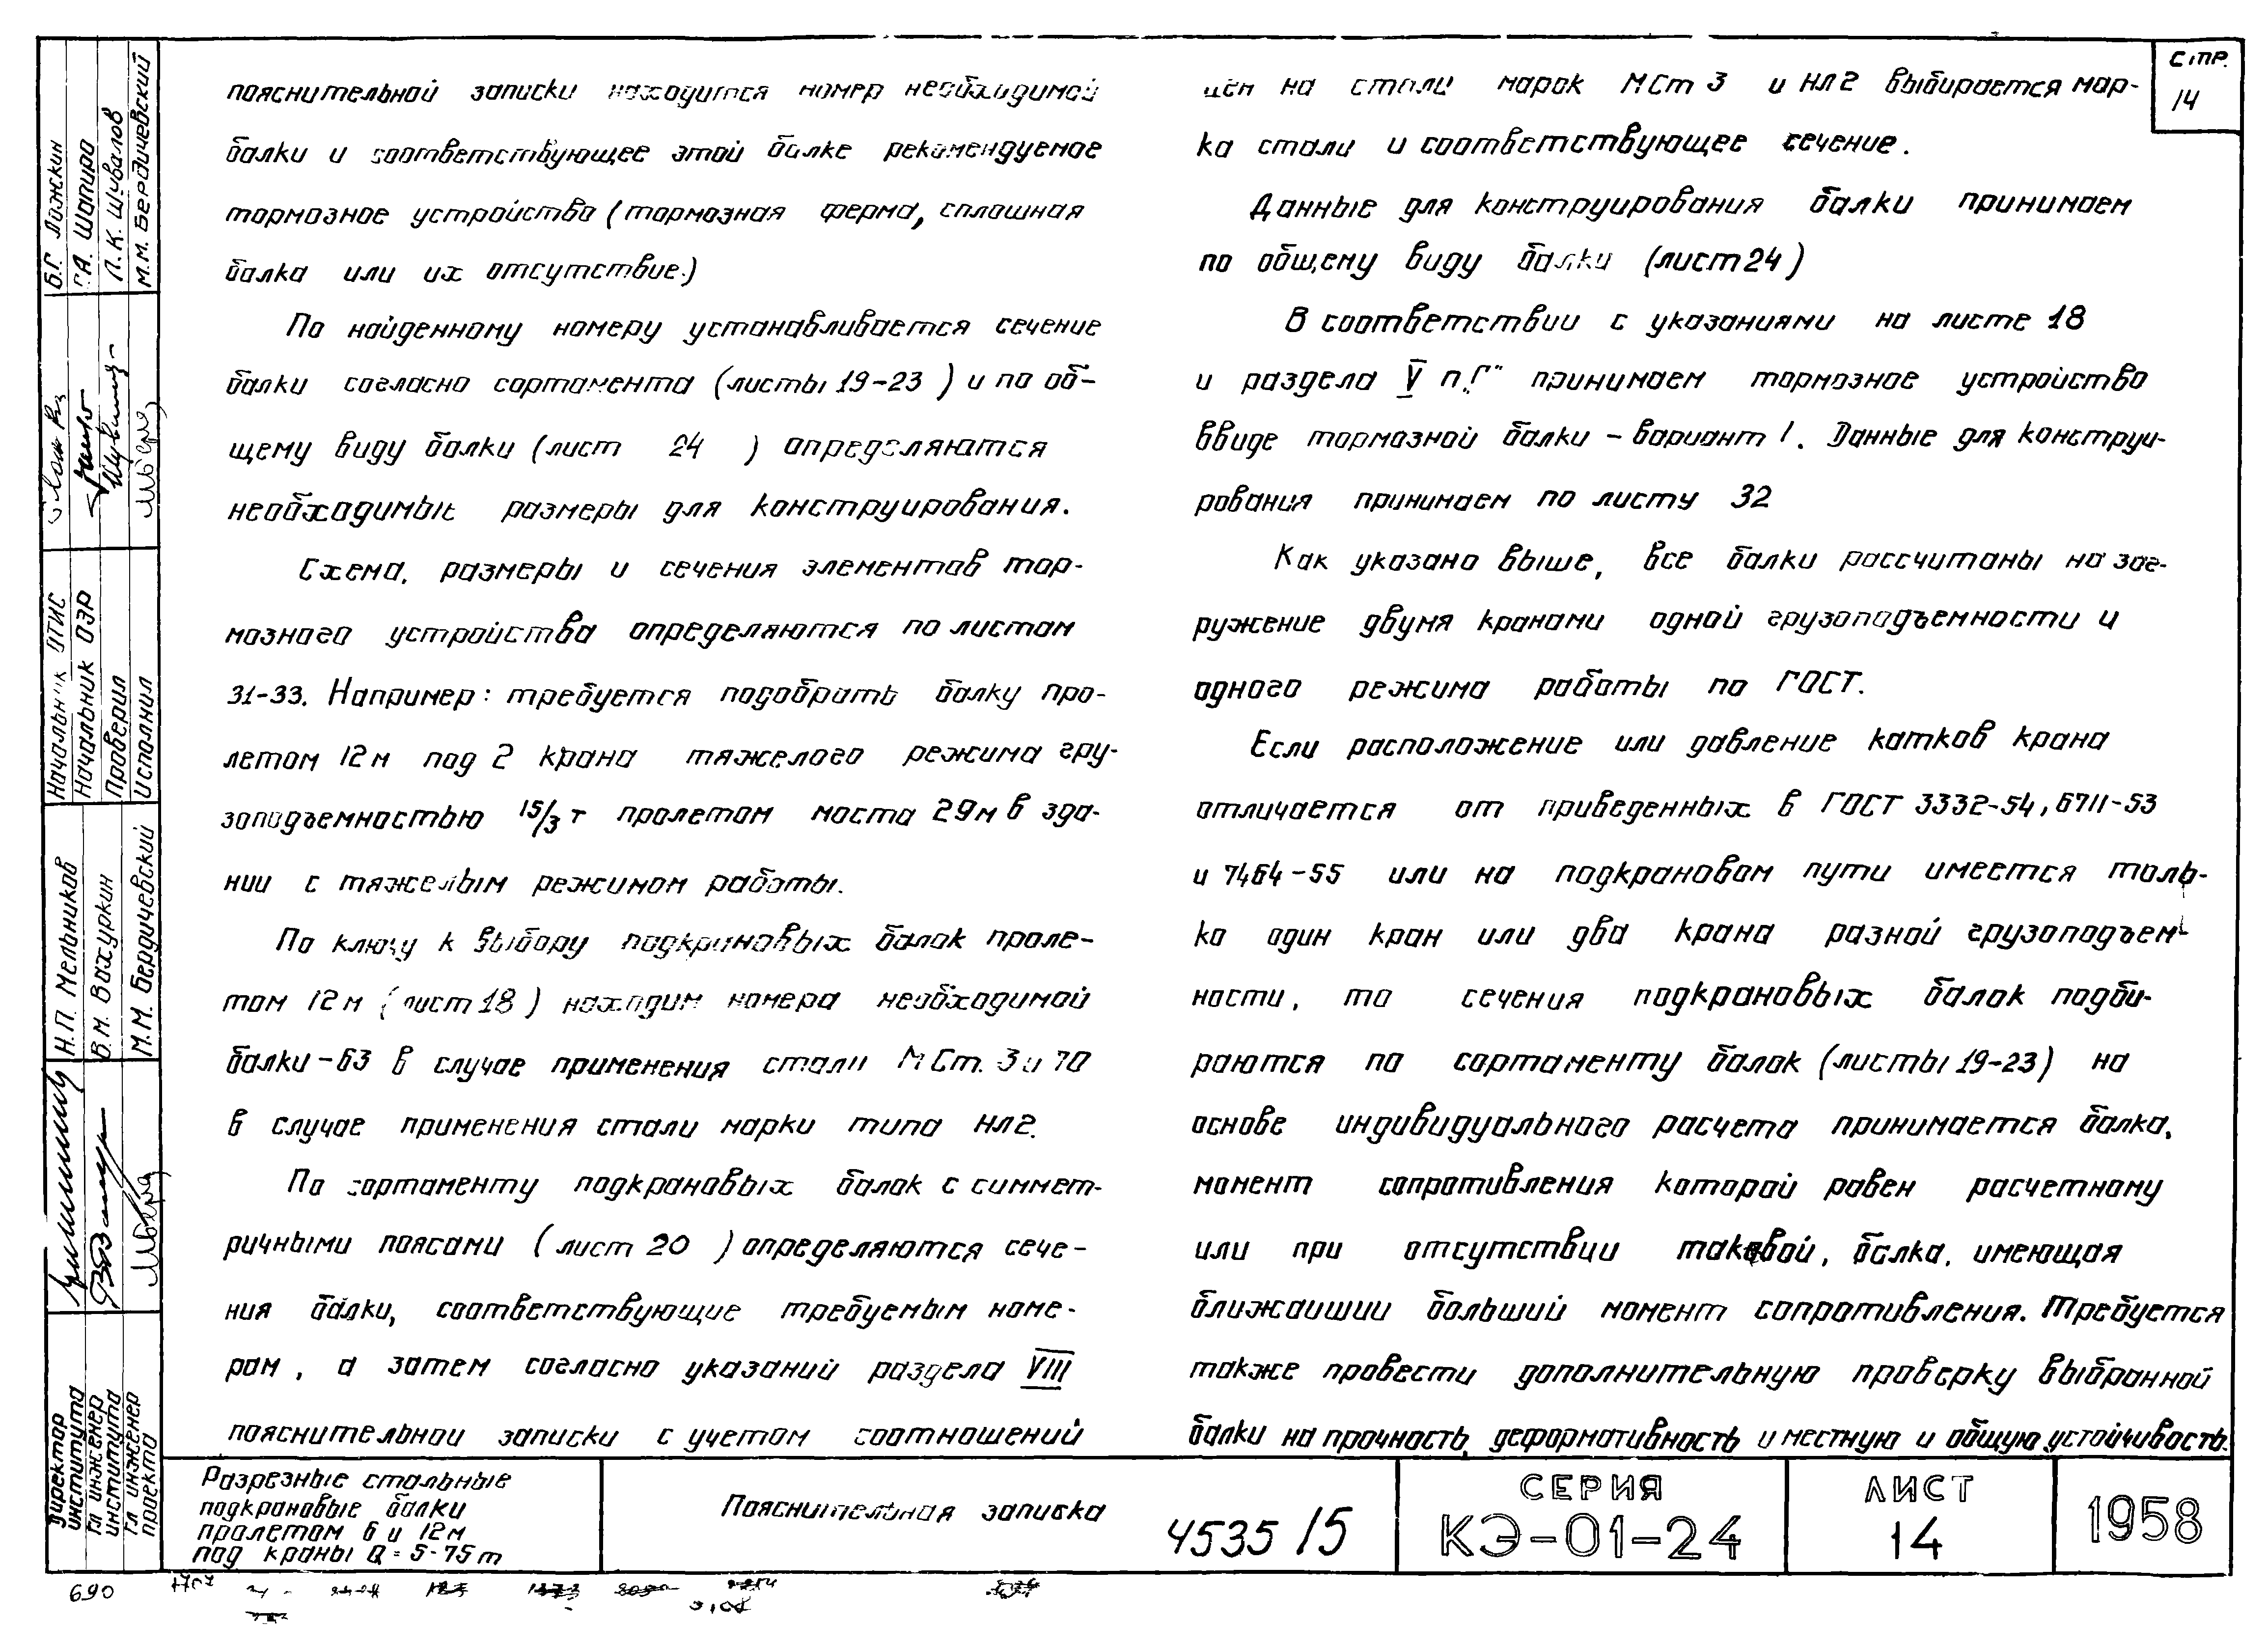 пояснительной записки находится номер необходимой
балки и соответствующее этой балке рекомендуемое
тормозное устройство (тормозная ферма, сплошная
балка или их отсутствие.)
По найденному номеру устанавливается сечение
балки согласно сортамента (листы 19-23) и по об-
щему виду балки (лист 24) определяются
необходимые размеры для конструирования.
Схема, размеры и сечения элементов тор-
мозного устройства определяются по листам
31-33. Например: требуется подобрать балку про-
летом 12м под 2 крана тяжелого режима гру-
зоподъемностью 15/3 т пролетом моста 29м в зда-
нии с тяжелым режимом работы.
По ключу к выбору подкрановых балок проле-
том 12м (лист 18) находим номера необходимой
балки-63 в случае применения стали МСт. 3 и 70
в случае применения стали марки типа НЛ2.
По сортаменту подкрановых балок с симмет-
ричными поясами (лист 20) определяются сече-
ния балки, соответствующие требуемым номе-
рам, а затем согласно указаний раздела VIII
пояснительной записки с учетом соотношений
цен на стали марок МСт 3 и НЛ2 выбирается мар-
ка стали и соответствующее сечение.
Данные для конструирования балки принимаем
по общему виду балки (лист 24)
В соответствии с указаниями на листе 18
и раздела V п."Г" принимаем тормозное устройство
ввиде тормозной балки - вариант 1. Данные для конструи-
рования принимаем по листу 32
Как указано выше, все балки рассчитаны на заг-
ружение двумя кранами одной грузоподъемности и
одного режима работы по ГОСТ.
Если расположение или давление катков крана
отличается от приведенных в ГОСТ 3332-54, 6711-53
и 7464-55 или на подкрановом пути имеется толь-
ко один кран или два крана разной грузоподъем-
ности, то сечения подкрановых балок подби-
раются по сортаменту балок (листы 19-23) на
основе индивидуального расчета принимается балка,
момент сопротивления которой равен расчетному
или при отсутствии таковой, балка, имеющая
ближайший больший момент сопротивления. Требуется
также провести дополнительную проверку выбранной
балки на прочность, деформативность и местную и общую устойчивость.
Стр.
14
Б.Г. Ложкин
Г.А. Шапиро
Л.К. Шувалов
М.М. Бердичевский
Начальник ОТИС
Начальник ОЭР
Проверил
Исполнил
Н.П. Мельников
В.М. Вахуркин
М.М. Бердичевский
Директор института
Гл инженер института
Гл инженер проекта
Разрезные стальные
подкрановые балки
пролетом 6 и 12м
под краны Q=5-75т
Пояснительная записка
4535/5
СЕРИЯ
КЭ-01-24
ЛИСТ
14
1958
690